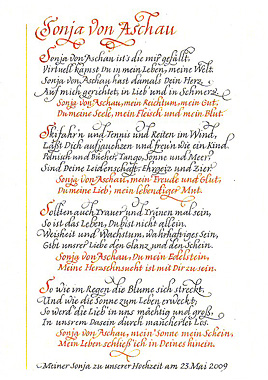 Sonja von Aschau
Sonja von Aschau ist's die mir gefällt.
Virtuell kamst Du in mein Leben, meine Welt.
Sonja von Aschau hast damals Dein Herz
Auf mich gerichtet, in Lieb' und in Schmerz.
Sonja von Aschau, mein Reichtum, mein Gut,
Du meine Seele, mein Fleisch und mein Blut.
Skifahr'n und Tennis und Reiten im Wind,
Läßt Dich aufjauchzen und freu'n wie ein Kind.
und Bücher, Tango, Sonne und Meer,
Sind Deine Leidenschaft, Ehrgeiz und Zier.
Sonja von Aschau, mein' Freude und Glut,
Du meine Lieb', mein lebendiger Mut.
Sollten auch Trauer und Tränen mal sein,
So ist das Leben, Du bist nicht allein.
Weisheit und Wachstum, wahrhaftiges Sein,
Gibt unsrer Liebe den Glanz und den Schein.
Sonja von Aschau, Du mein Edelstein,
Meine Herzsehnsucht ist mit Dir zu sein.
So wie im Regen die Blume sich streckt,
Und wie die Sonne zum Leben erweckt,
So werd die Lieb' in uns mächtig und groß,
In unsrem Dasein durch mancherlei Los.
Sonja von Aschau, mein' Sonne mein Schein,
Mein Leben schließ ich in Deines hinein.
Meiner Sonja zu unserer Hochzeit am 23. Mai 2009